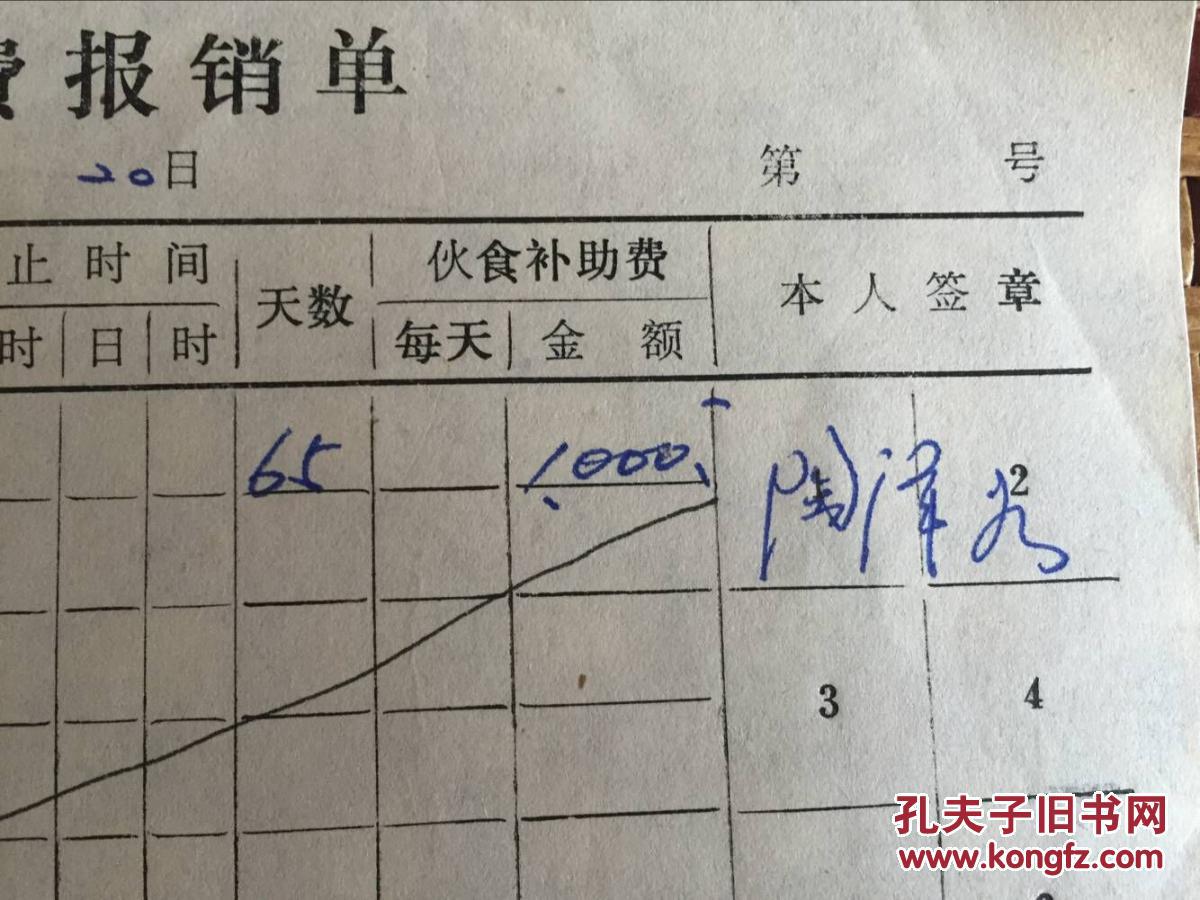 费报销单
20日 第 号
止时间 天数 伙食补助费 本人签章
时 日 时 每天 金额
65 1000
陶泽 2
3 4
孔夫子旧书网
www.kongfz.com